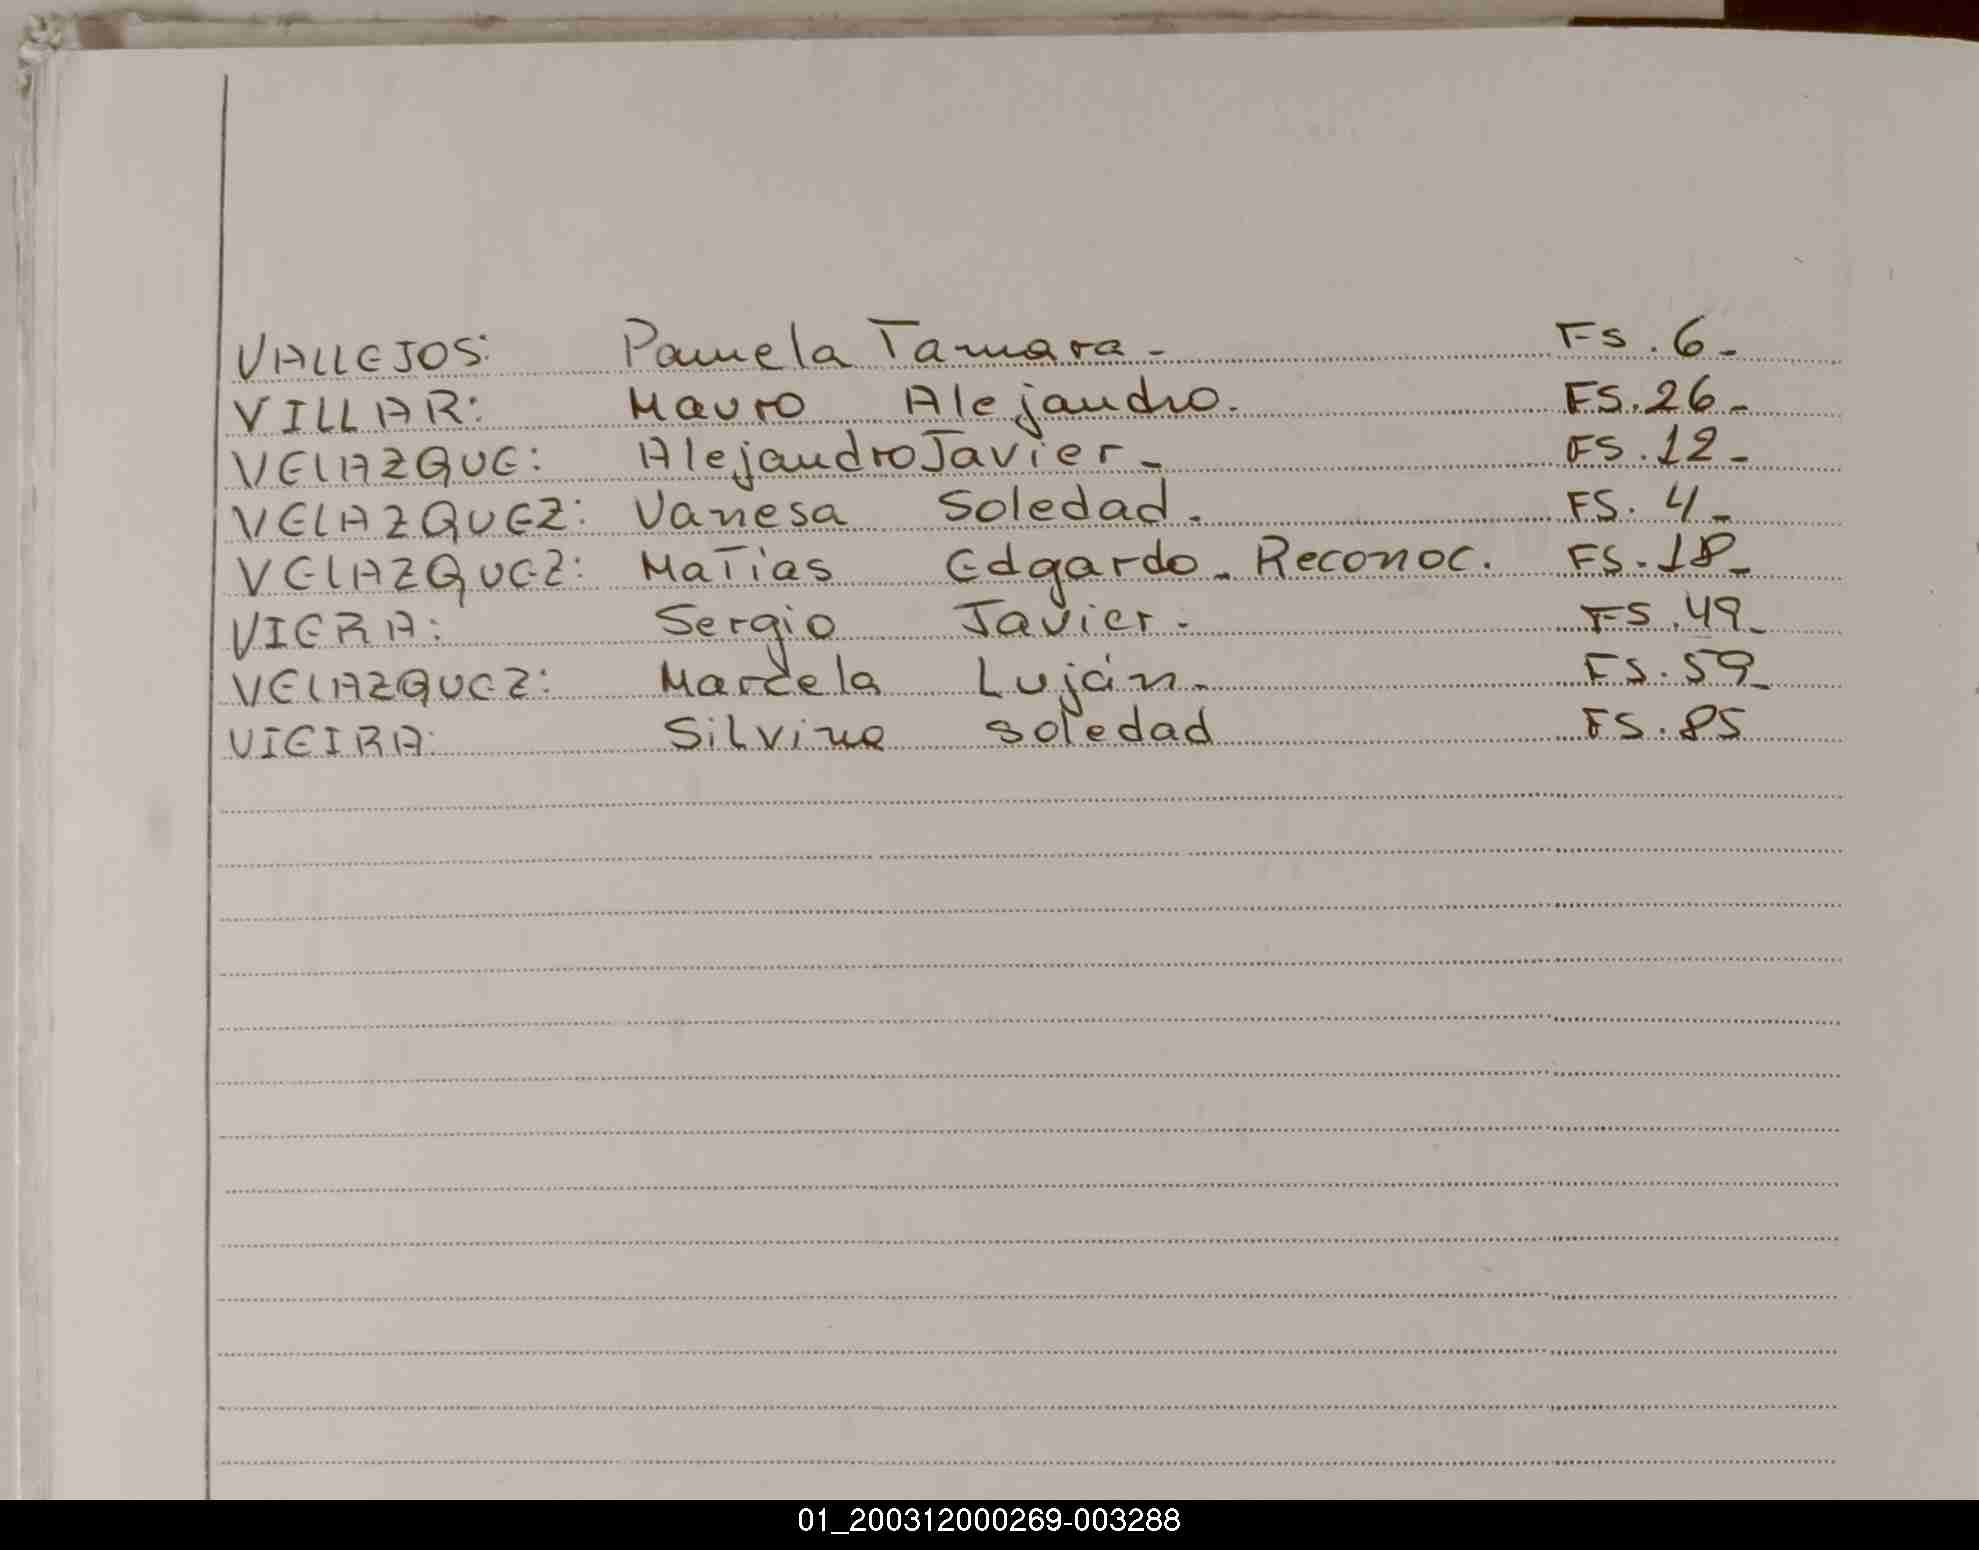 VALLEJOS: Pamela Tamara - FS. 6 -
VILLAR: Mauro Alejandro. FS. 26 -
VELAZQUE: Alejandro Javier - FS. 12 -
VELAZQUEZ: Vanesa Soledad. FS. 4 -
VELAZQUEZ: Matías Edgardo - Reconoc. FS. 18 -
VIERA: Sergio Javier - FS. 49 -
VELAZQUEZ: Marcela Luján - FS. 59 -
VIEIRA: Silvina Soledad FS. 85
01_200312000269-003288